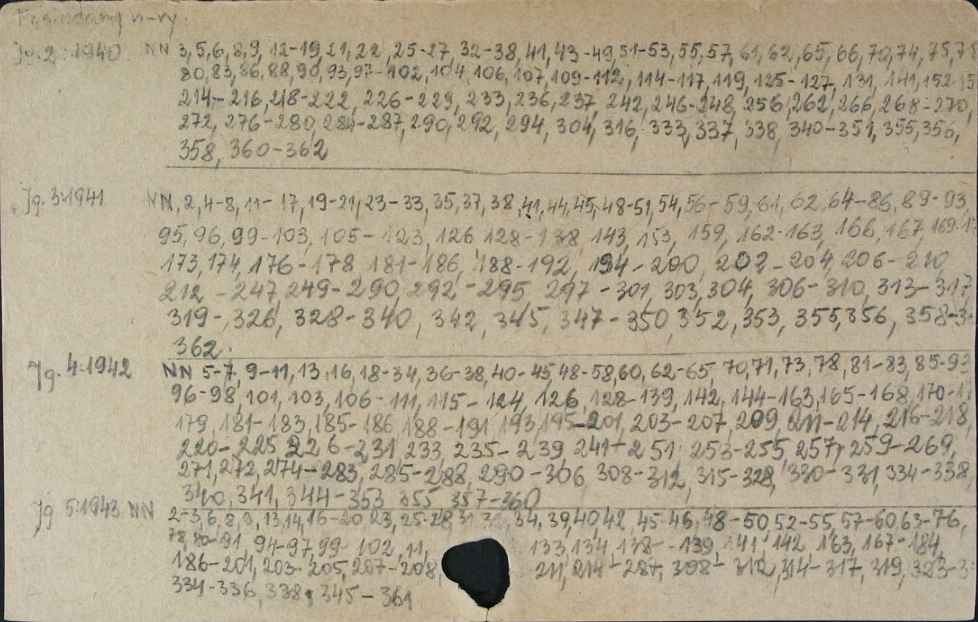 Jg. 2:1940 NN 3,5,6,8,9, 12-19,21,22, 25-27, 32-38, 41, 43-49, 51-53, 55, 57, 61, 62, 65, 66, 70, 74, 75,
80, 83, 86, 88, 90, 93, 97-102, 104, 106, 107, 109-112, 114-117, 119, 125-127, 131, 141, 152-
214-216, 218-222, 226-229, 233, 236, 237, 242, 246-248, 256, 262, 266, 268-270,
272, 276-280, 284-287, 290, 292, 294, 304, 316, 333, 337, 338, 340-351, 355, 356,
358, 360-362
Jg. 3:1941 NN, 2, 4-8, 11-17, 19-21, 23-33, 35, 37, 38, 41, 44, 45, 48-51, 54, 56-59, 61, 62, 64-86, 89-93
95, 96, 99-103, 105-123, 126, 128-138, 143, 153, 159, 162-163, 166, 167, 169-
173, 174, 176-178, 181-186, 188-192, 194-200, 202-204, 206-210,
212-247, 249-290, 292-295, 297-301, 303, 304, 306-310, 313-317
319-326, 328-340, 342, 345, 347-350, 352, 353, 355, 356, 358-
362.
Jg. 4:1942 NN 5-7, 9-11, 13, 16, 18-34, 36-38, 40-45, 48-58, 60, 62-65, 70, 71, 73, 78, 81-83, 85-93
96-98, 101, 103, 106-111, 115-124, 126, 128-139, 142, 144-163, 165-168, 170-
179, 181-183, 185-186, 188-191, 193, 195-201, 203-207, 209, 211-214, 216-218,
220-225, 226-231, 233, 235-239, 241-251, 253-255, 257, 259-269,
271, 272, 274-283, 285-288, 290-306, 308-312, 315-328, 330-331, 334-338,
340, 341, 344-353, 355, 357-360
Jg 5:1943 NN 2-3, 6, 8, 9, 13, 14, 16-20, 23, 25-28, 34, 39, 40, 42, 45-46, 48-50, 52-55, 57-60, 63-76,
78, 80-91, 94-97, 99-102, 11, 133, 134, 138-139, 141, 142, 163, 167-184
186-201, 203-205, 207-208, 211, 214-287, 308-312, 314-317, 319, 323-
334-336, 338, 345-361